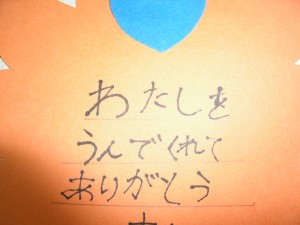 わたしを
うんでくれて
ありがとう